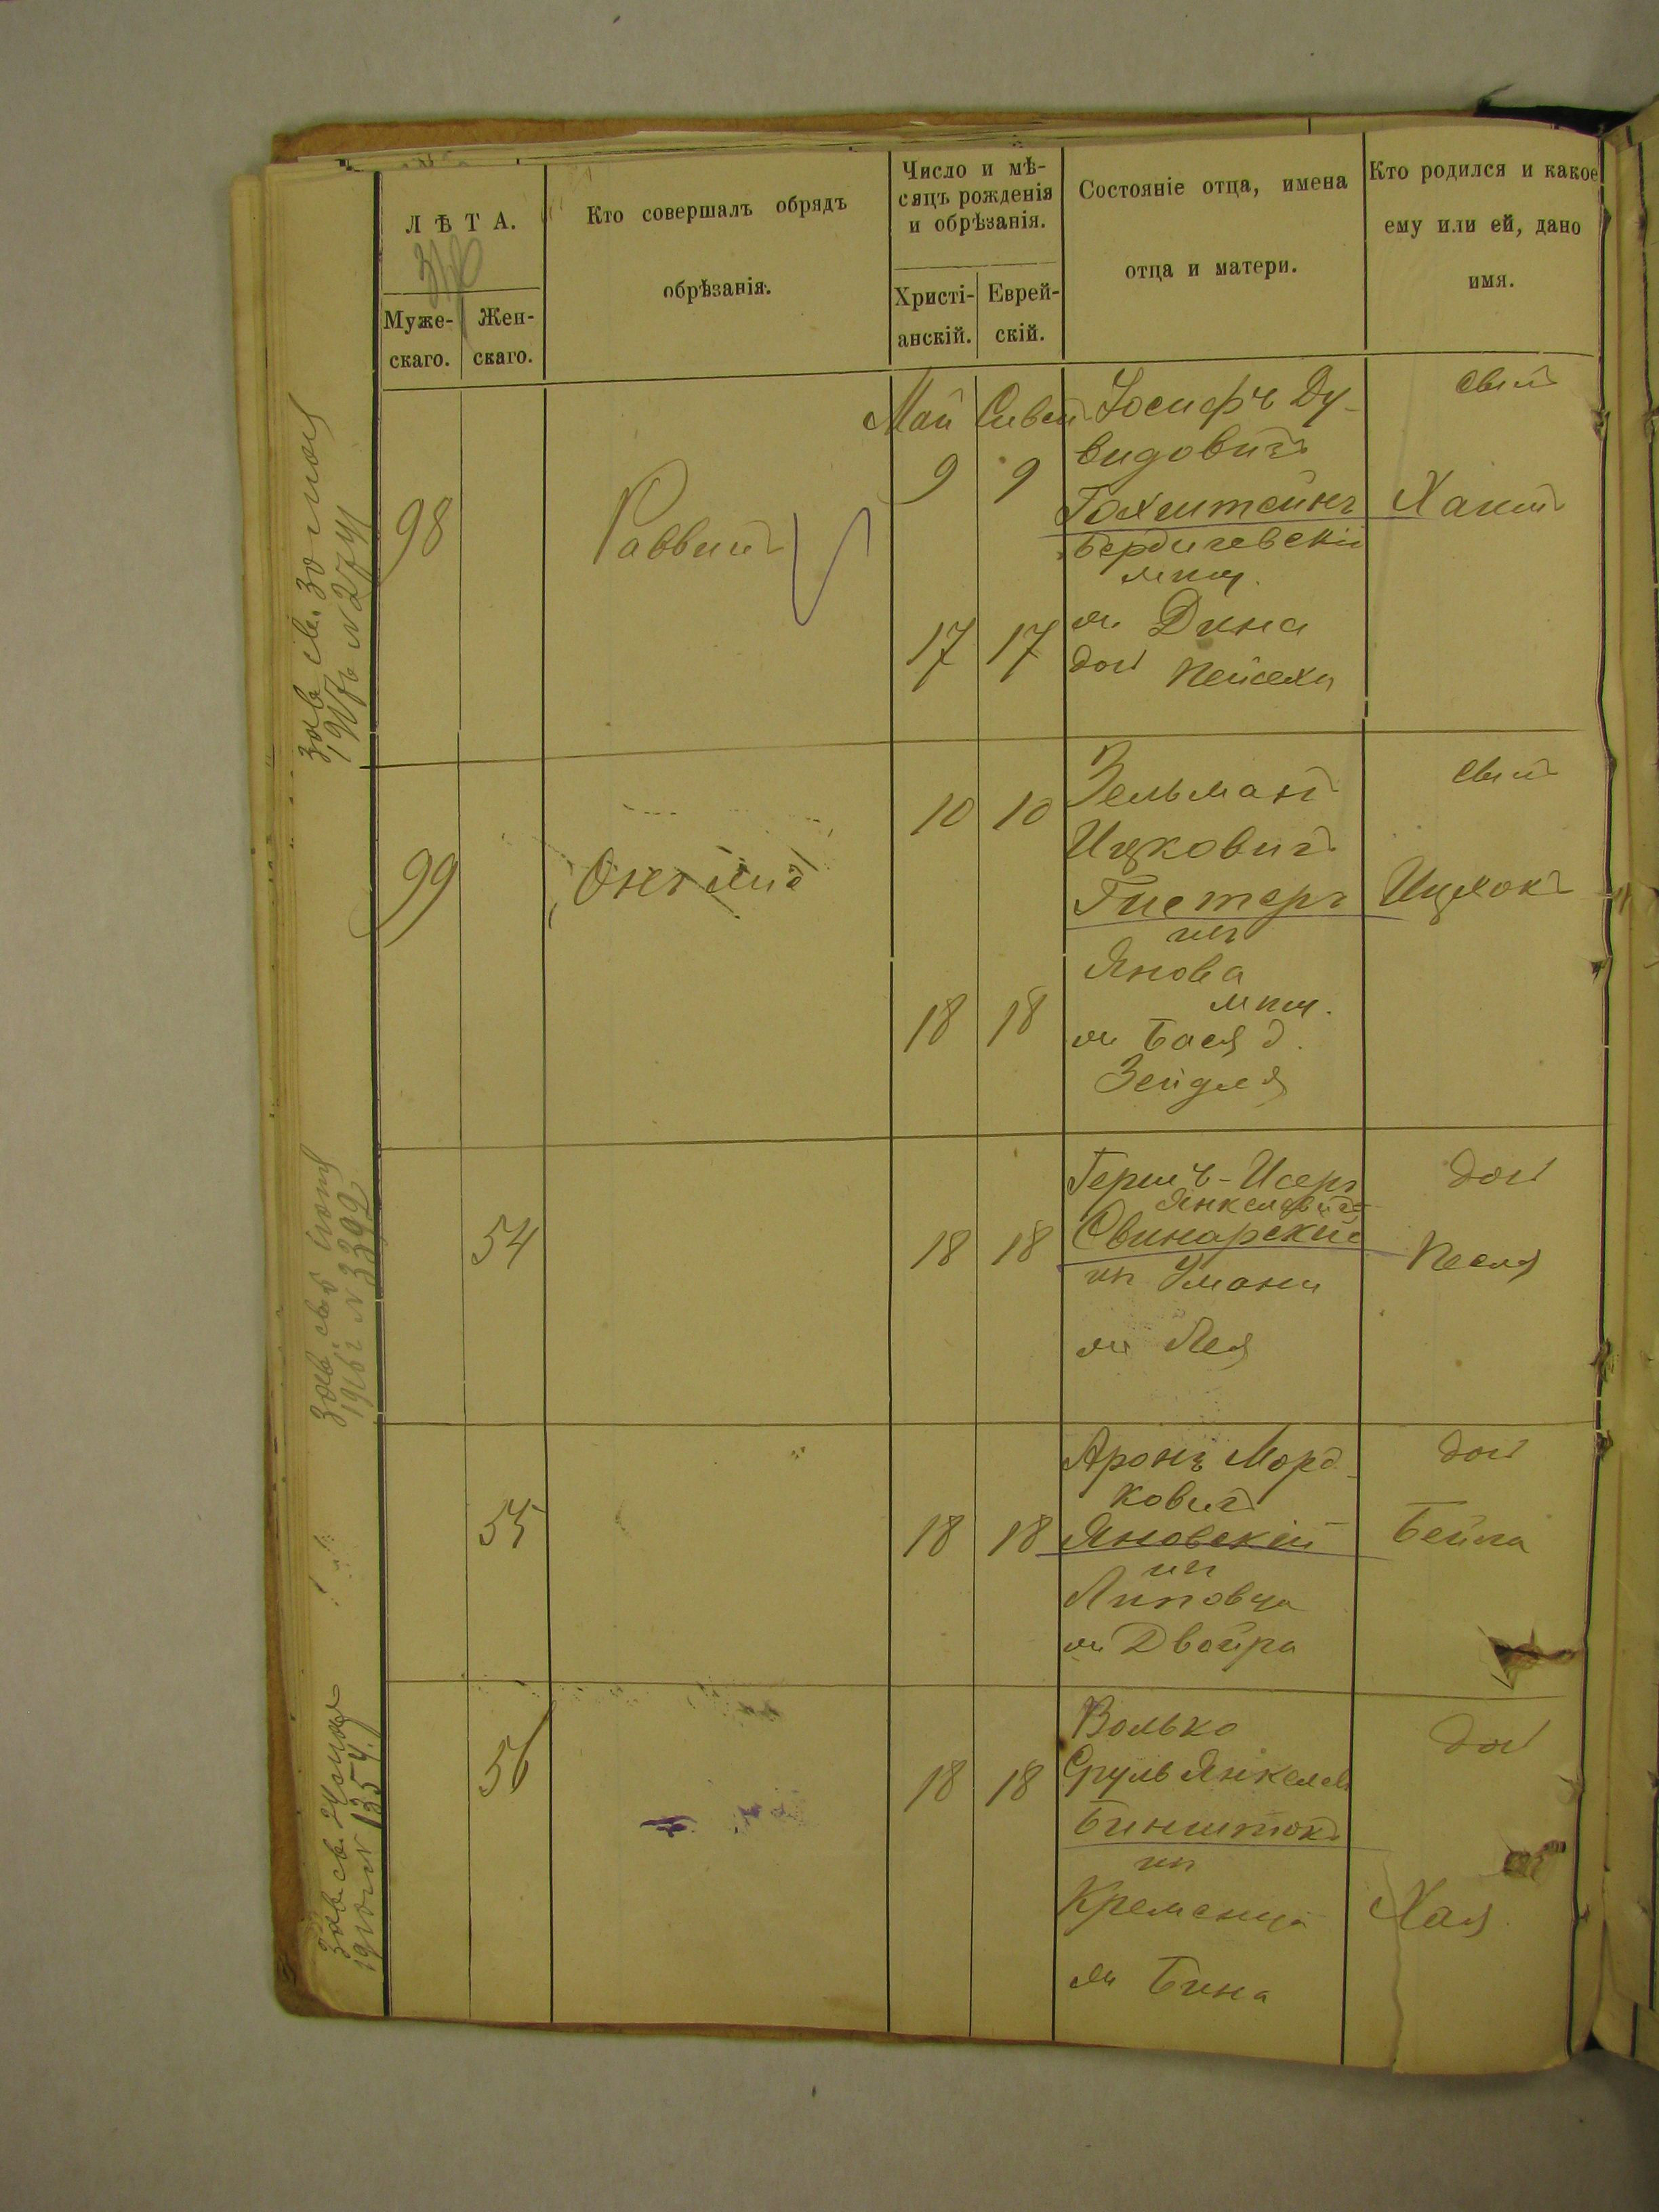 ЛѢТА.
Муже-
скаго.
Жен-
скаго.
Кто совершалъ обрядъ
обрѣзанія.
Число и мѣ-
сяцъ рожденія
и обрѣзанія.
Христі-
анскій.
Еврей-
скій.
Состояніе отца, имена
отца и матери.
Кто родился и какое
ему или ей, дано
имя.
98
Раввинъ
Май
9
17
Сиван
9
17
Іосифъ Ду-
видовичъ
Гохштейнъ
Бердичевскій
мещ.
м. Дина
доч Пейсаха
сынъ
Хаимъ
99
Онъ же
10
18
10
18
Зельманъ
Ицковичъ
Гистеръ
изъ
Янова
мещ.
м Бася д.
Зейделя
сынъ
Ицхокъ
54
18
18
Гершъ-Исеръ
Янкелевичъ
Свинарскій
изъ Умани
м Лея
доч
Песля
55
18
18
Аронъ Морд-
ковичъ
Яновскій
изъ
Липовца
м Двойра
доч
Бейла
56
18
18
Волько
Сруль Янкелев
Бинштокъ
из
Кременца
м Бина
доч
Хая